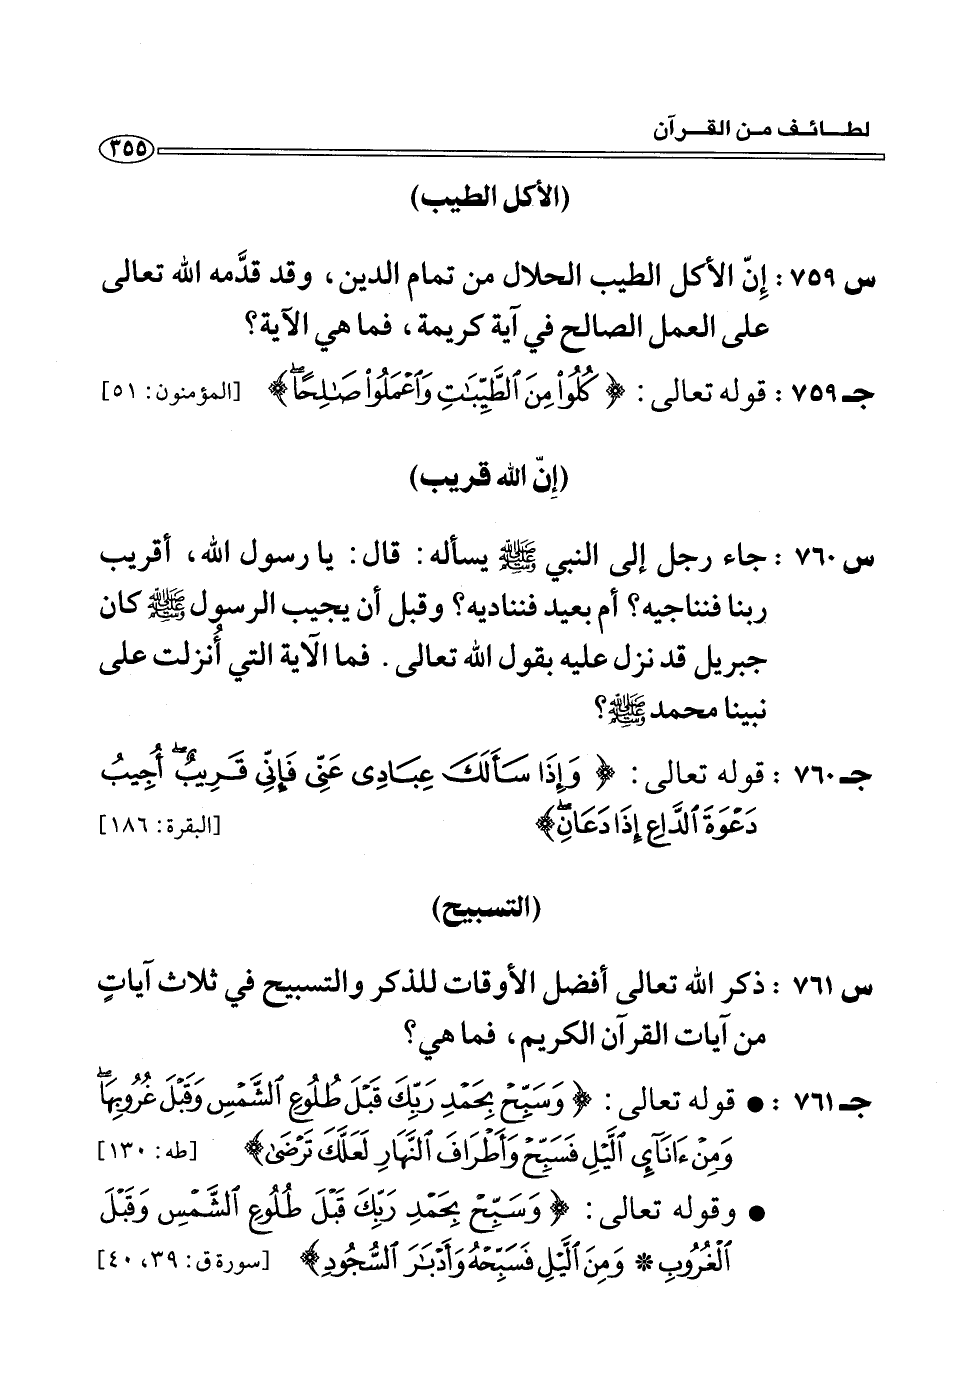 لطائف من القرآن
٣٥٥
(الأكل الطيب)
س ٧٥٩ : إنّ الأكل الطيب الحلال من تمام الدين، وقد قدَّمه الله تعالى
على العمل الصالح في آية كريمة، فما هي الآية؟
جـ ٧٥٩ : قوله تعالى: ﴿ كُلُوا۟ مِنَ ٱلطَّيِّبَٰتِ وَٱعْمَلُوا۟ صَٰلِحًا ۖ﴾ [المؤمنون: ٥١]
(إنّ الله قريب)
س ٧٦٠ : جاء رجل إلى النبي ﷺ يسأله: قال: يا رسول الله، أقريب
ربنا فنناجيه؟ أم بعيد فنناديه؟ وقبل أن يجيب الرسول ﷺ كان
جبريل قد نزل عليه بقول الله تعالى. فما الآية التي أُنزلت على
نبينا محمد ﷺ؟
جـ ٧٦٠ : قوله تعالى: ﴿ وَإِذَا سَأَلَكَ عِبَادِى عَنِّى فَإِنِّى قَرِيبٌ ۖ أُجِيبُ
دَعْوَةَ ٱلدَّاعِ إِذَا دَعَانِ ۖ﴾ [البقرة: ١٨٦]
(التسبيح)
س ٧٦١ : ذكر الله تعالى أفضل الأوقات للذكر والتسبيح في ثلاث آياتٍ
من آيات القرآن الكريم، فما هي؟
جـ ٧٦١ : ● قوله تعالى: ﴿ وَسَبِّحْ بِحَمْدِ رَبِّكَ قَبْلَ طُلُوعِ ٱلشَّمْسِ وَقَبْلَ غُرُوبِهَا ۖ
وَمِنْ ءَانَآئِ ٱلَّيْلِ فَسَبِّحْ وَأَطْرَافَ ٱلنَّهَارِ لَعَلَّكَ تَرْضَىٰ﴾ [طه: ١٣٠]
● وقوله تعالى: ﴿ وَسَبِّحْ بِحَمْدِ رَبِّكَ قَبْلَ طُلُوعِ ٱلشَّمْسِ وَقَبْلَ
ٱلْغُرُوبِ * وَمِنَ ٱلَّيْلِ فَسَبِّحْهُ وَأَدْبَٰرَ ٱلسُّجُودِ﴾ [سورة ق: ٣٩، ٤٠]